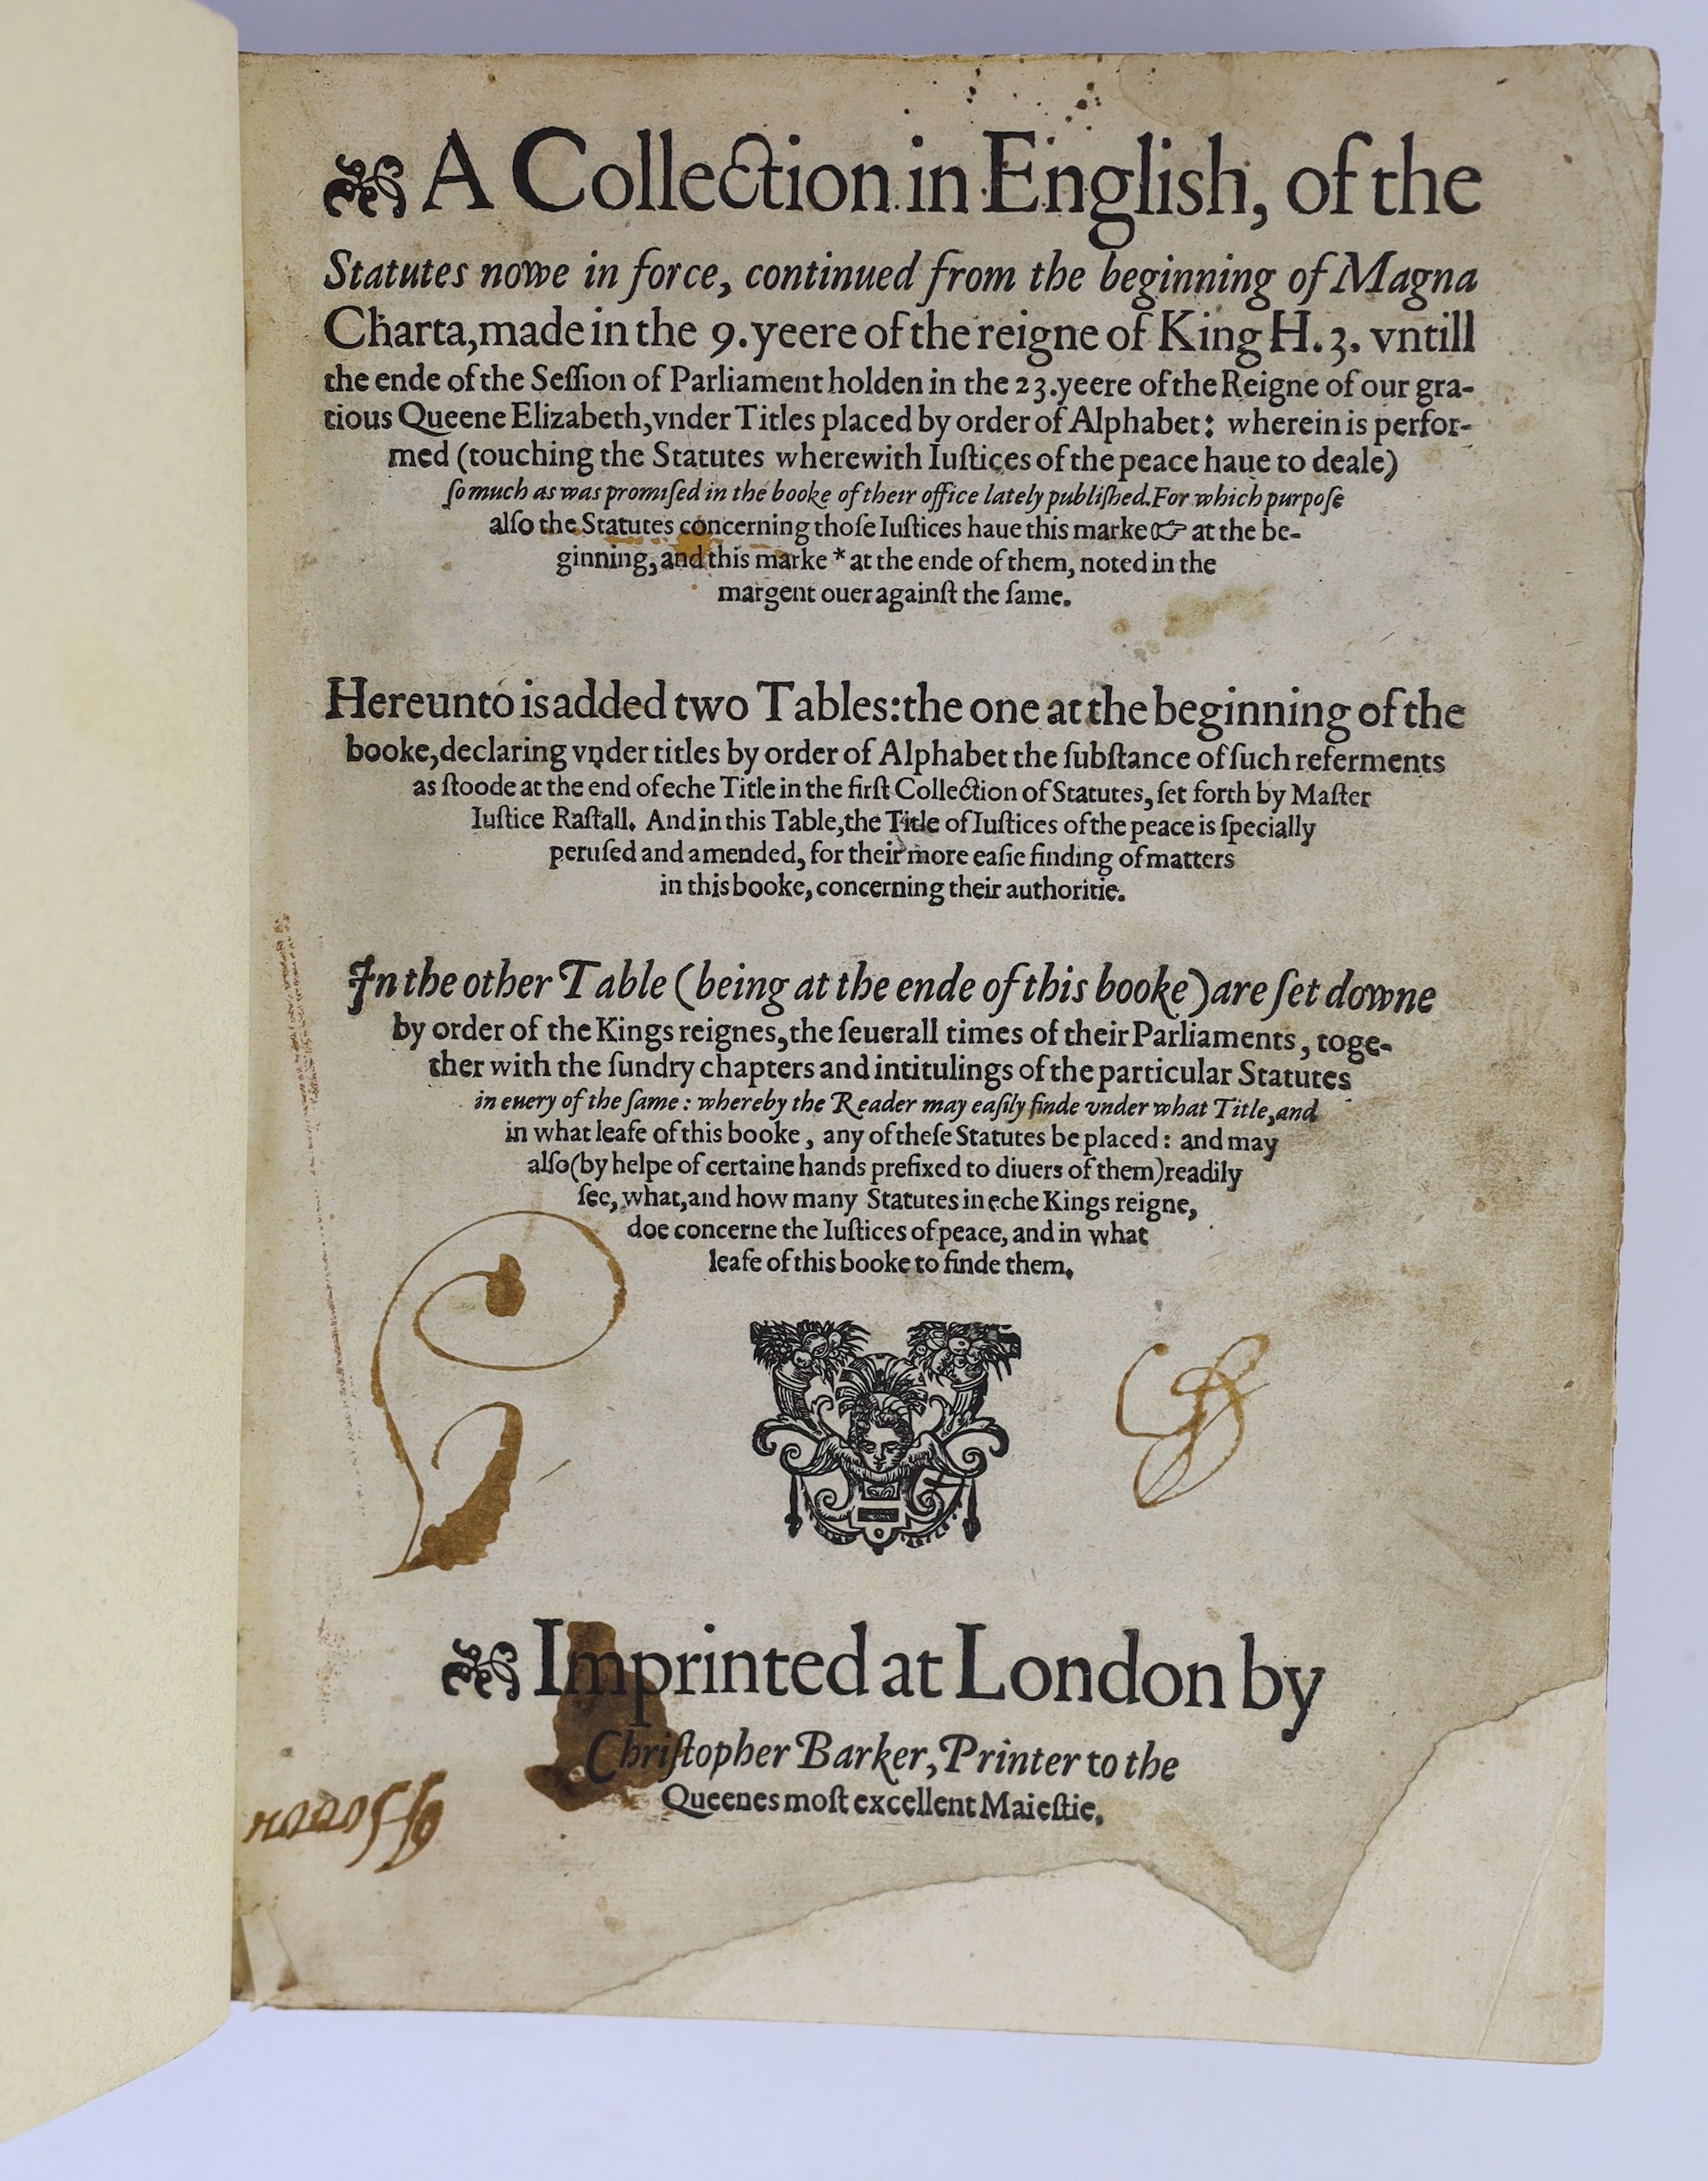 A Collection in English, of the
Statutes nowe in force, continued from the beginning of Magna
Charta, made in the 9. yeere of the reigne of King H. 3. vntill
the ende of the Seſſion of Parliament holden in the 23. yeere of the Reigne of our gra-
tious Queene Elizabeth, vnder Titles placed by order of Alphabet: wherein is perfor-
med (touching the Statutes wherewith Iuſtices of the peace haue to deale)
ſo much as was promiſed in the booke of their office lately publiſhed. For which purpoſe
alſo the Statutes concerning thoſe Iuſtices haue this marke ☞ at the be-
ginning, and this marke * at the ende of them, noted in the
margent ouer againſt the ſame.
Hereunto is added two Tables: the one at the beginning of the
booke, declaring vnder titles by order of Alphabet the ſubſtance of ſuch referments
as ſtoode at the end of eche Title in the firſt Collection of Statutes, ſet forth by Maſter
Iuſtice Raſtall. And in this Table, the Title of Iuſtices of the peace is ſpecially
peruſed and amended, for their more eaſie finding of matters
in this booke, concerning their authoritie.
In the other Table (being at the ende of this booke) are ſet downe
by order of the Kings reignes, the ſeuerall times of their Parliaments, toge-
ther with the ſundry chapters and intitulings of the particular Statutes
in euery of the ſame: whereby the Reader may eaſily finde vnder what Title, and
in what leafe of this booke, any of theſe Statutes be placed: and may
alſo (by helpe of certaine hands prefixed to diuers of them) readily
ſee, what, and how many Statutes in eche Kings reigne,
doe concerne the Iuſtices of peace, and in what
leafe of this booke to finde them.
Imprinted at London by
Chriſtopher Barker, Printer to the
Queenes moſt excellent Maieſtie.